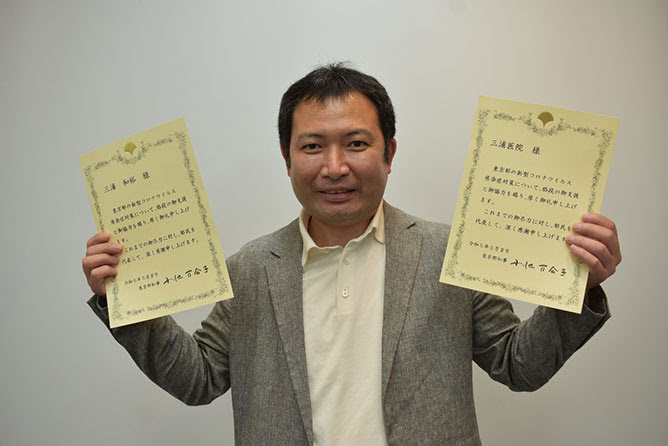 三浦 和裕 様
東京都の新型コロナウイルス
感染症対策について、格段の御支援
と御協力を賜り、厚く御礼申し上げ
ます。
これまでの御尽力に対し、都民を
代表して、深く感謝申し上げます。
令和5年5月8日
東京都知事 小池百合子
三浦医院 様
東京都の新型コロナウイルス
感染症対策について、格段の御支援
と御協力を賜り、厚く御礼申し上げ
ます。
これまでの御尽力に対し、都民を
代表して、深く感謝申し上げます。
東京都知事 小池百合子